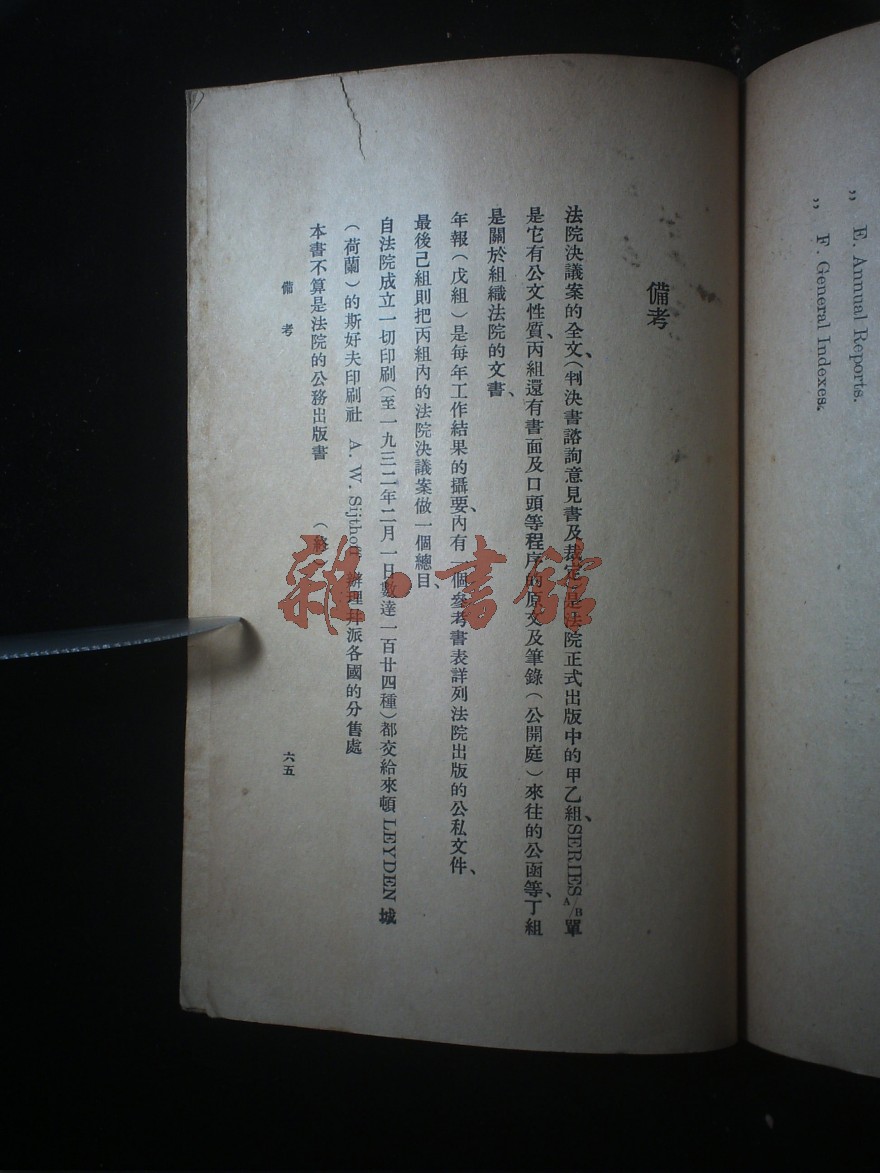 „ E. Annual Reports.
„ F. General Indexes.
備考
法院決議案的全文、(判決書諮詢意見書及裁定)是法院正式出版中的甲乙組、SERIES A/B單
是它有公文性質、丙組還有書面及口頭等程序的原文及筆錄(公開庭)來往的公函等、丁組
是關於組織法院的文書、
年報(戊組)是每年工作結果的攝要、內有一個參考書表詳列法院出版的公私文件、
最後己組則把丙組內的法院決議案做一個總目、
自法院成立一切印刷(至一九三二年二月一日數達一百廿四種)都交給來頓LEYDEN城
(荷蘭)的斯好夫印刷社 A. W. Sijthoff 辦理并派各國的分售處
本書不算是法院的公務出版書 (終)
備考
六五
雜·書館